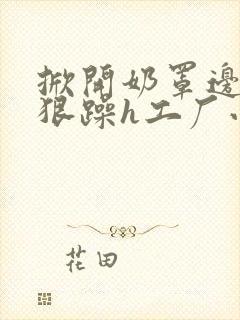 掀開奶罩邊
狠躁h工厂
花田